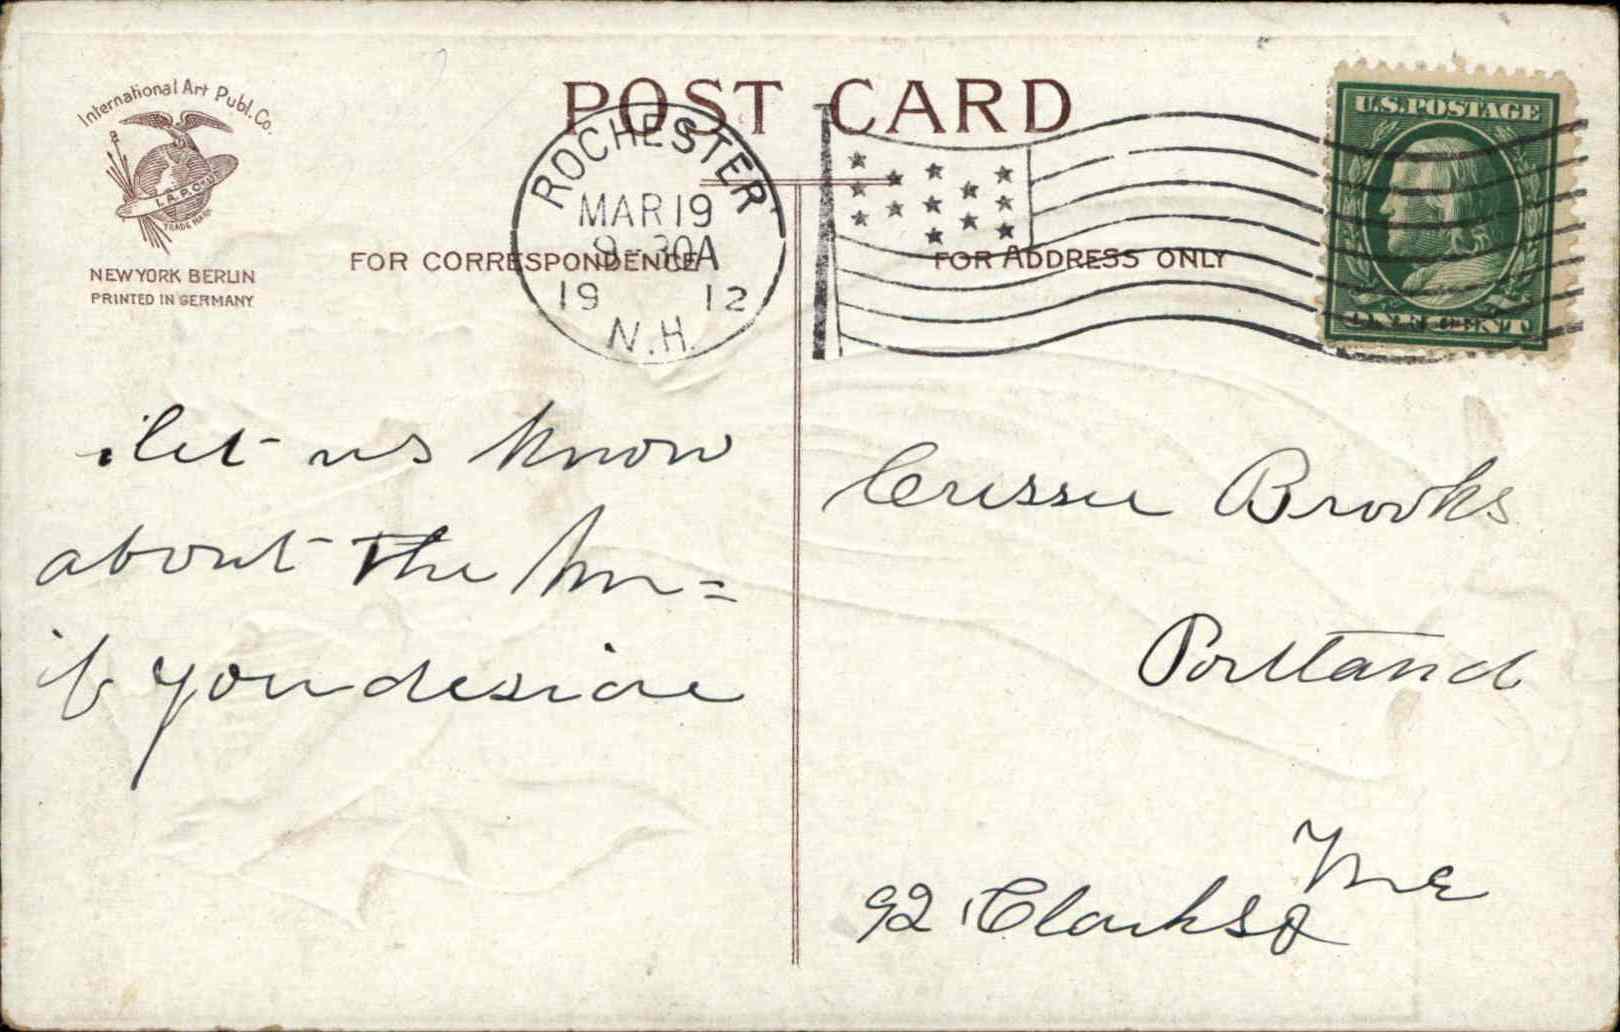 International Art Publ. Co.
I.A.P.Co.
TRADE MARK
NEW YORK BERLIN
PRINTED IN GERMANY
POST CARD
ROCHESTER
MAR 19
30 A
19 12
N.H.
FOR CORRESPONDENCE
FOR ADDRESS ONLY
U.S. POSTAGE
let us know
about the
if you desire
Crissie Brooks
Portland
Me
92 Clark